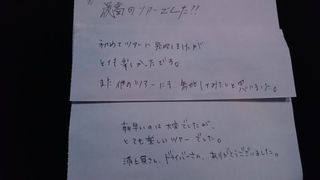 最高のツアーでした!!
初めてツアーに参加しましたが
とても楽しかったです。
また他のツアーにも参加してみたいと思いました。
朝早いのは大変でしたが、
とても楽しいツアーでした。
添乗員さん、ドライバーさん、ありがとうございました。